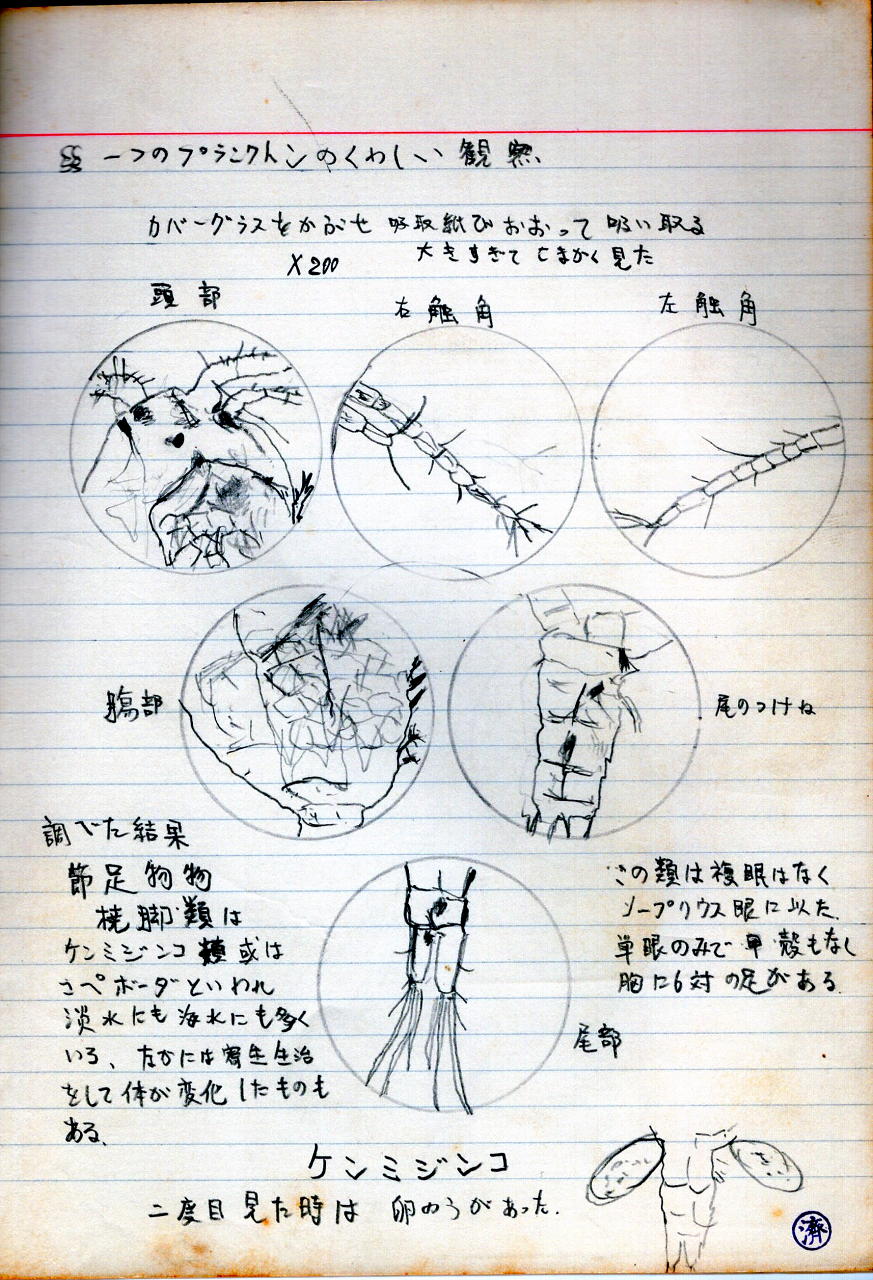 §§ 一つのプランクトンのくわしい観察
カバーグラスをかぶせ 吸取紙でおおって吸い取る
大きすぎて こまかく見た
×200
頭部
右触角
左触角
胸部
尾のつけね
調べた結果
節足物物
橈脚類は
ケンミジンコ類或は
さペポーダといわれ
淡水にも海水にも多く
いろ、なかには寄生生治
をして体が変化したものも
ある。
この類は複眼はなく
ノープリウス眼に以た
単眼のみで甲殻もなし
胸に6対の足がある。
尾部
ケンミジンコ
二度目見た時は 卵のうがあった.
済